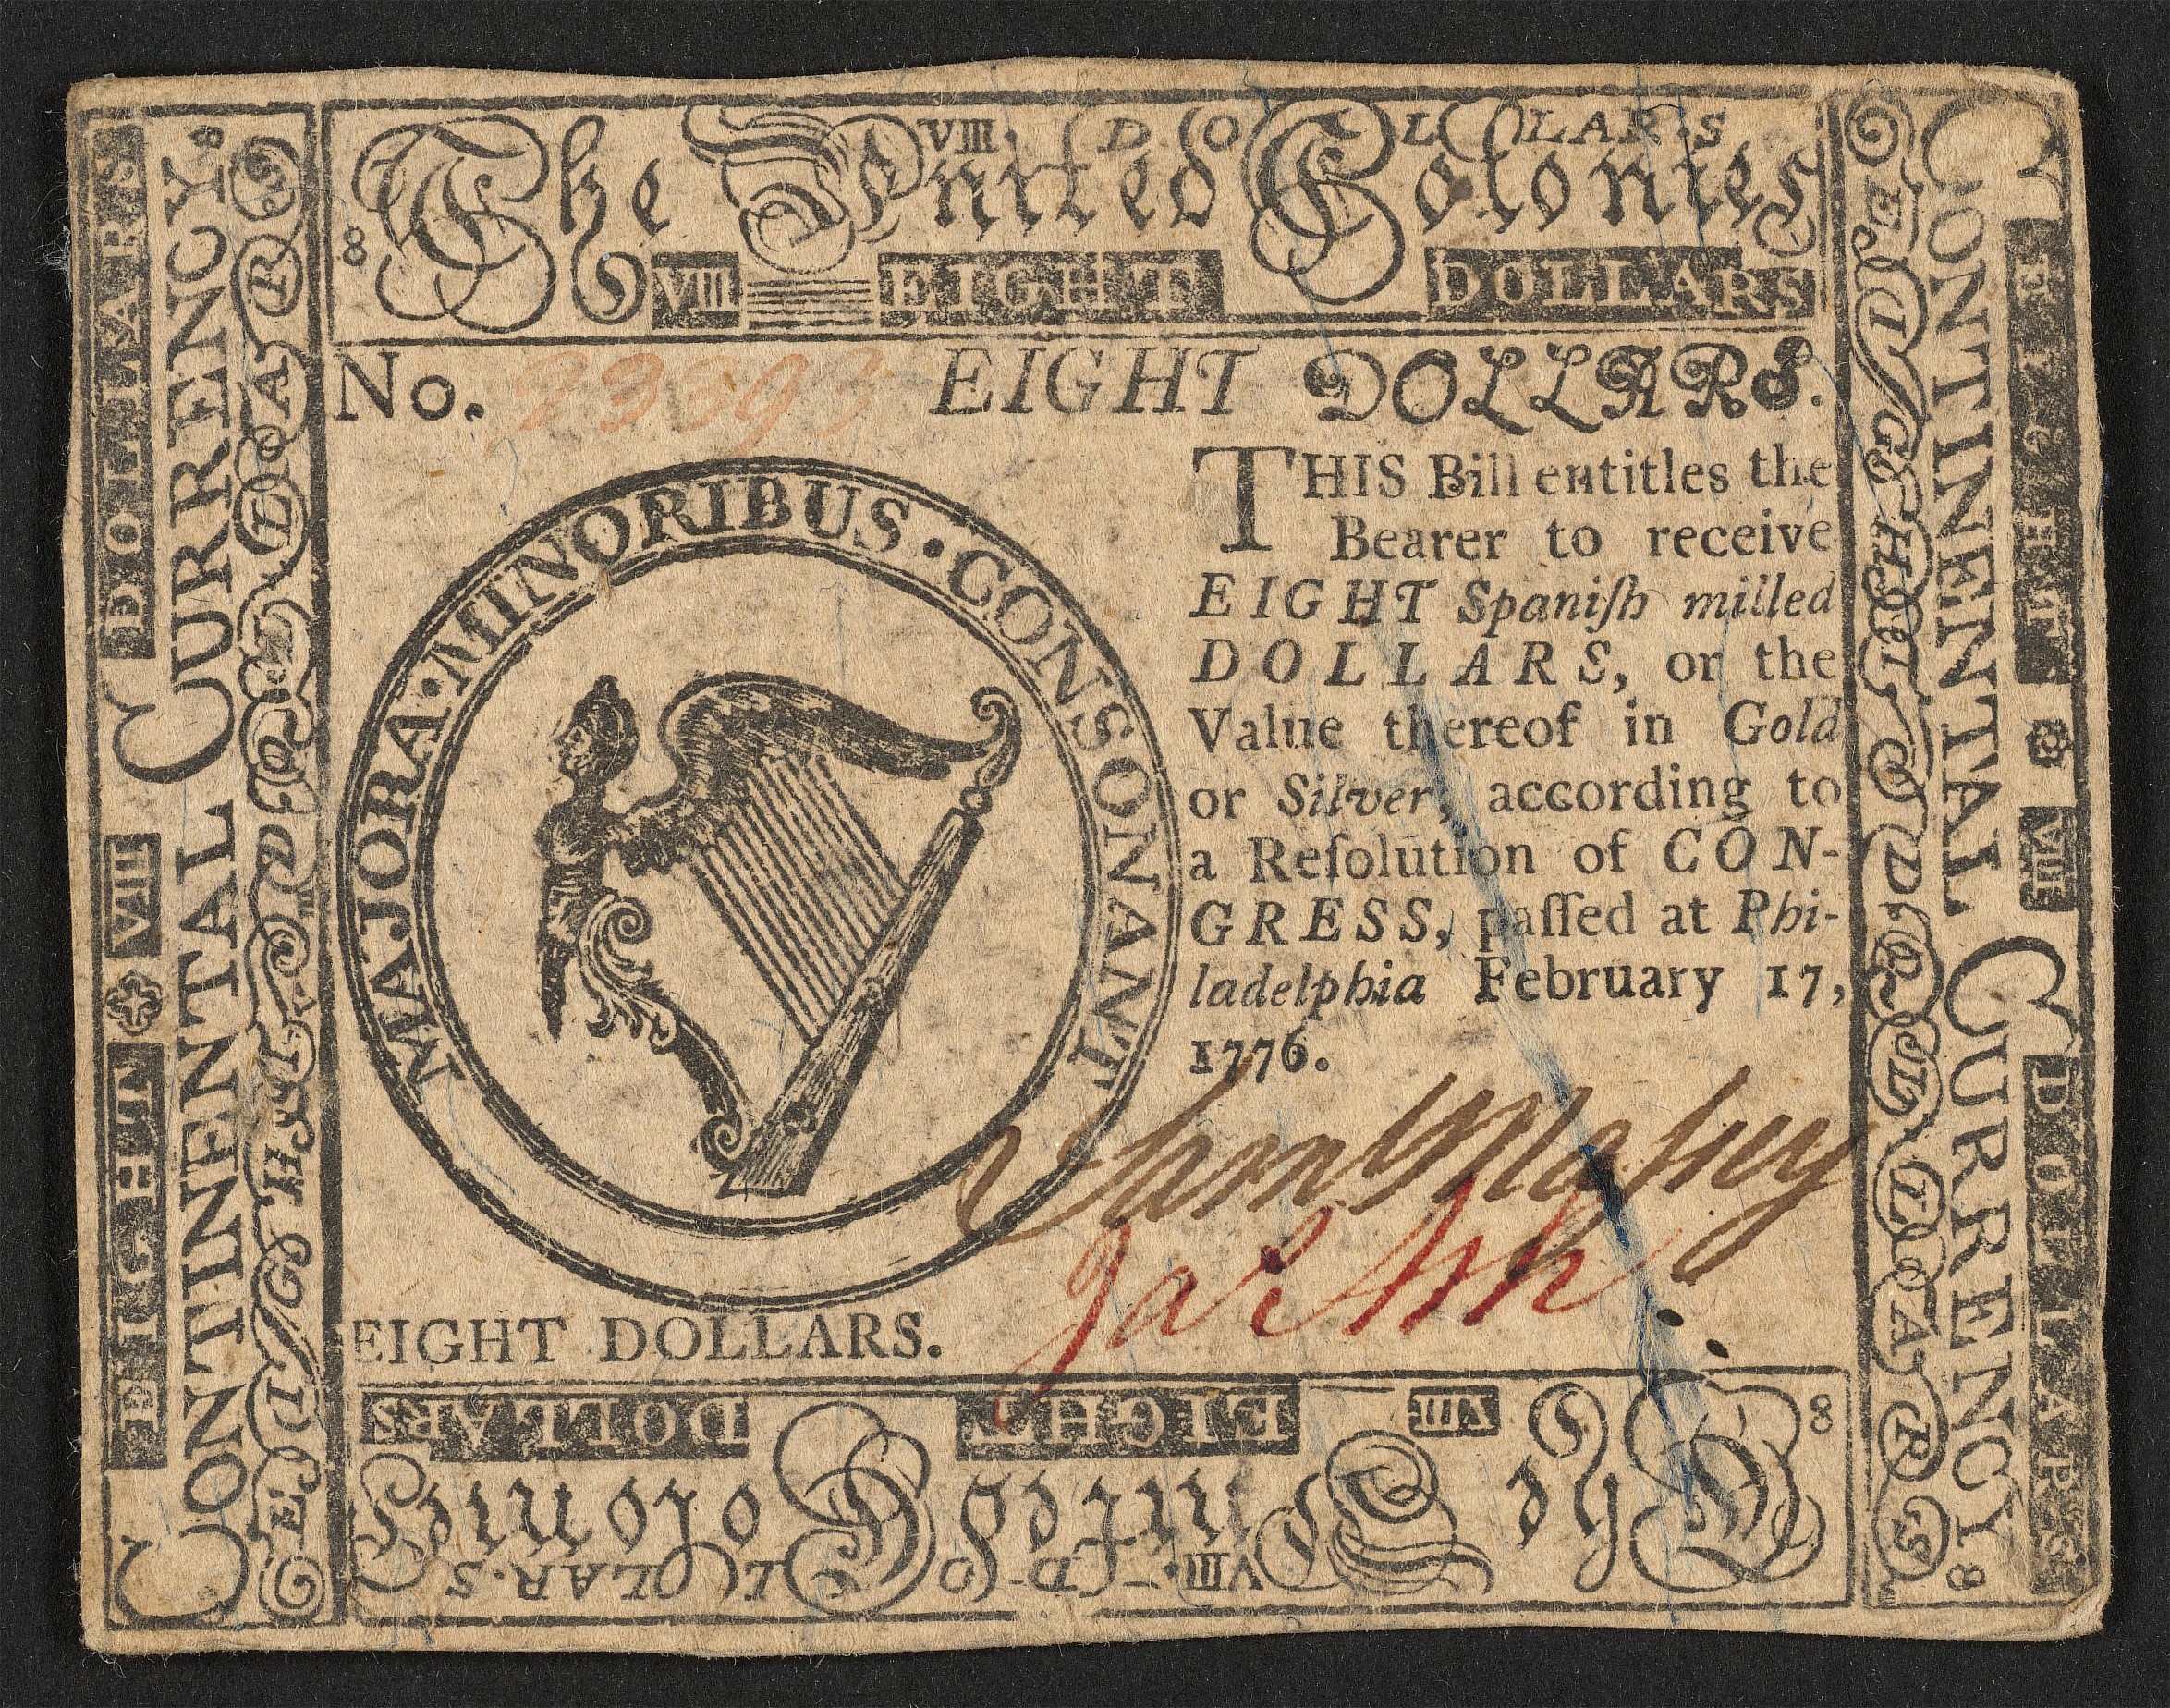 VIII. DOLLARS
The United Colonies
8
VIII EIGHT DOLLARS
No. EIGHT DOLLARS.
MAJORA · MINORIBUS · CONSONANT
THIS Bill entitles the
Bearer to receive
EIGHT Spaniſh milled
DOLLARS, or the
Value thereof in Gold
or Silver, according to
a Reſolution of CON-
GRESS, paſſed at Phi-
ladelphia February 17,
1776.
EIGHT DOLLARS.
DOLLARS EIGHT VIII 8
The United Colonies
VIII. DOLLARS
EIGHT VIII DOLLARS
CONTINENTAL CURRENCY. 8
EIGHT DOLLARS
EIGHT DOLLARS
CONTINENTAL CURRENCY 8
EIGHT VIII DOLLARS